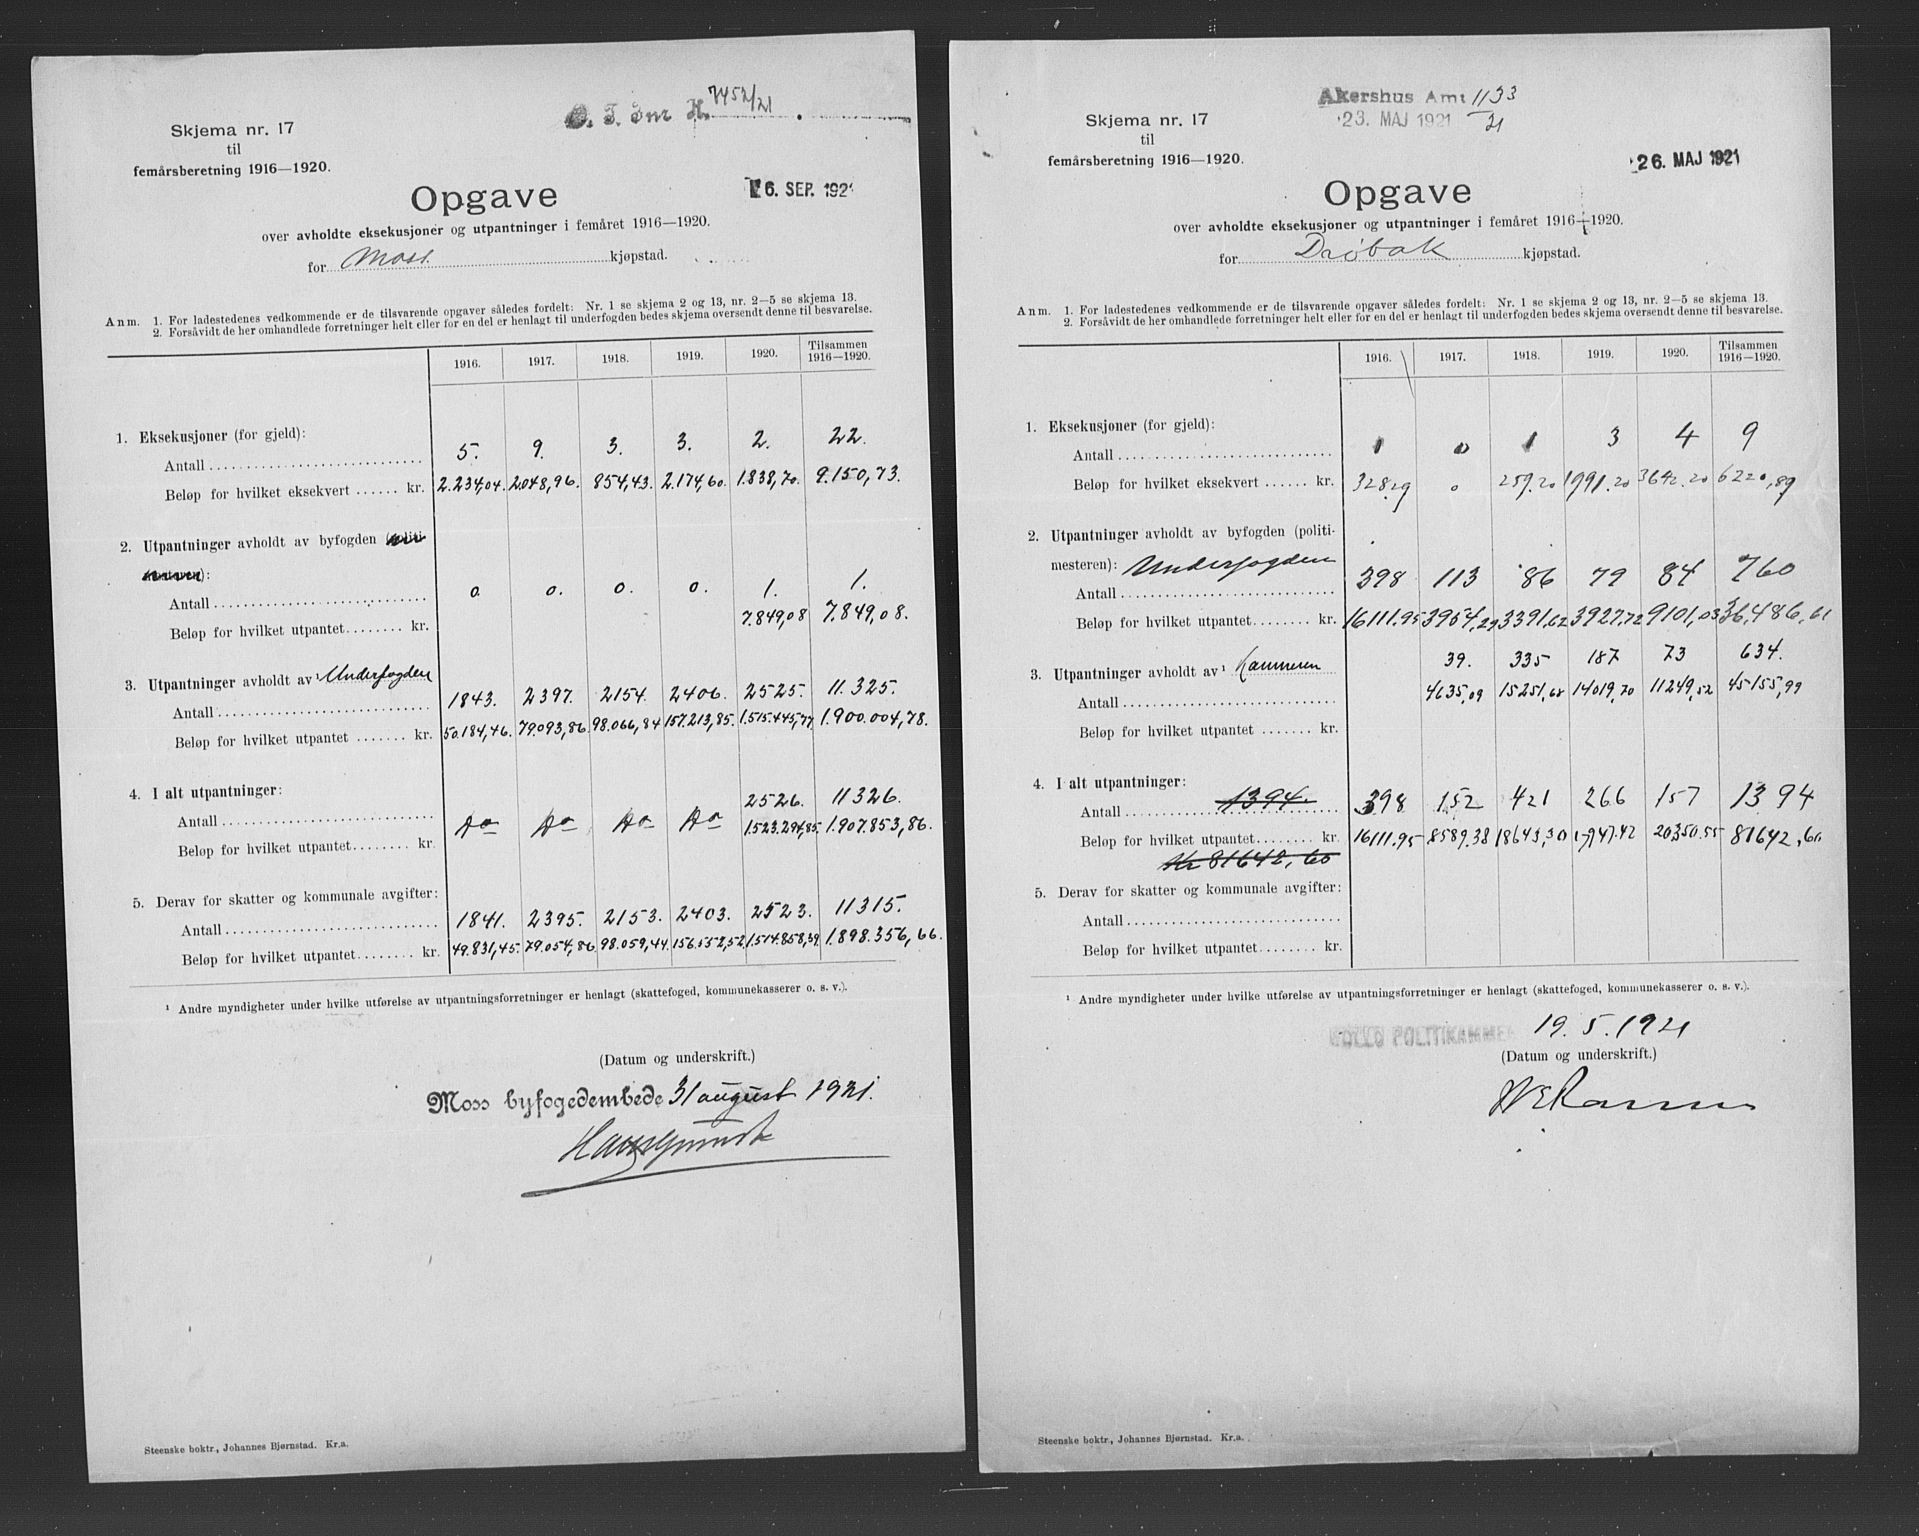 7452/21
Skjema nr. 17
til
femårsberetning 1916—1920.
6. SEP. 1921
Opgave
over avholdte eksekusjoner og utpantninger i femåret 1916—1920.
for Moss kjøpstad.
Anm. 1. For ladestedenes vedkommende er de tilsvarende opgaver således fordelt: Nr. 1 se skjema 2 og 13, nr. 2—5 se skjema 13.
2. Forsåvidt de her omhandlede forretninger helt eller for en del er henlagt til underfogden bedes skjema oversendt denne til besvarelse.
1916. 1917. 1918. 1919. 1920. Tilsammen 1916—1920.
1. Eksekusjoner (for gjeld):
Antall 5. 9. 3. 3. 2. 22.
Beløp for hvilket eksekvert kr. 2.234,04. 2.048,96. 854,43. 2.174,60. 1.838,70. 9.150,73.
2. Utpantninger avholdt av byfogden (politi-
mesteren):
Antall 0. 0. 0. 0. 1. 1.
Beløp for hvilket utpantet kr. 7.849,08 7.849,08.
3. Utpantninger avholdt av¹ Underfogden
Antall 1843. 2397. 2154. 2406. 2525. 11.325.
Beløp for hvilket utpantet kr. 50.184,46. 79.093,86. 98.066,84 157.213,85. 1.515.445,77 1.900.004,78.
4. I alt utpantninger:
Antall 2526. 11326.
Beløp for hvilket utpantet kr. Do Do Do Do 1.523.294,85. 1.907.853,86.
5. Derav for skatter og kommunale avgifter:
Antall 1841. 2395. 2153. 2403. 2523. 11315.
Beløp for hvilket utpantet kr. 49.831,45. 79.054,86. 98.059,44. 156.552,52. 1.514.858,39 1.898.356,66.
¹ Andre myndigheter under hvilke utførelse av utpantningsforretninger er henlagt (skattefoged, kommunekasserer o. s. v.).
(Datum og underskrift.)
Moss byfogedembede 31 august 1921.
Steenske boktr., Johannes Bjørnstad. Kr.a.
Akershus Amt 1133/21
23. MAJ 1921
Skjema nr. 17
til
femårsberetning 1916—1920.
26. MAJ 1921
Opgave
over avholdte eksekusjoner og utpantninger i femåret 1916—1920.
for Drøbak kjøpstad.
Anm. 1. For ladestedenes vedkommende er de tilsvarende opgaver således fordelt: Nr. 1 se skjema 2 og 13, nr. 2—5 se skjema 13.
2. Forsåvidt de her omhandlede forretninger helt eller for en del er henlagt til underfogden bedes skjema oversendt denne til besvarelse.
1916. 1917. 1918. 1919. 1920. Tilsammen 1916—1920.
1. Eksekusjoner (for gjeld):
Antall 1 0 1 3 4 9
Beløp for hvilket eksekvert kr. 328.29 0 259.20 1991.20 3642.20 6220,89
2. Utpantninger avholdt av byfogden (politi-
mesteren): Underfogden
Antall 398 113 86 79 84 760
Beløp for hvilket utpantet kr. 16111.95 3954,29 3391,62 3927,72 9101,03 36,486,61
3. Utpantninger avholdt av¹ Kæmneren 39. 335 187 73 634.
Antall 4635,09 15251,68 14019,70 11249,52 45155,99
Beløp for hvilket utpantet kr.
4. I alt utpantninger:
Antall 1394. 398 152 421 266 157 1394
Beløp for hvilket utpantet kr. 16111.95 8589.38 18643,30 17947.42 20350.55 81642,60
Kr 81642,60
5. Derav for skatter og kommunale avgifter:
Antall
Beløp for hvilket utpantet kr.
¹ Andre myndigheter under hvilke utførelse av utpantningsforretninger er henlagt (skattefoged, kommunekasserer o. s. v.).
FOLLO POLITIKAMMER 19.5.1921
(Datum og underskrift.)
Steenske boktr., Johannes Bjørnstad. Kr.a.